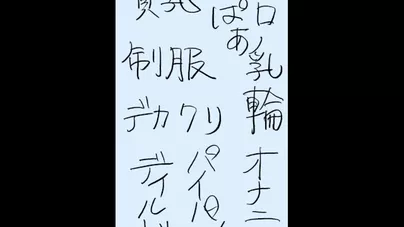 貧乳
ぱぁ
ロ乳輪
制服
デカクリ
ディル
パイパ
オナニ